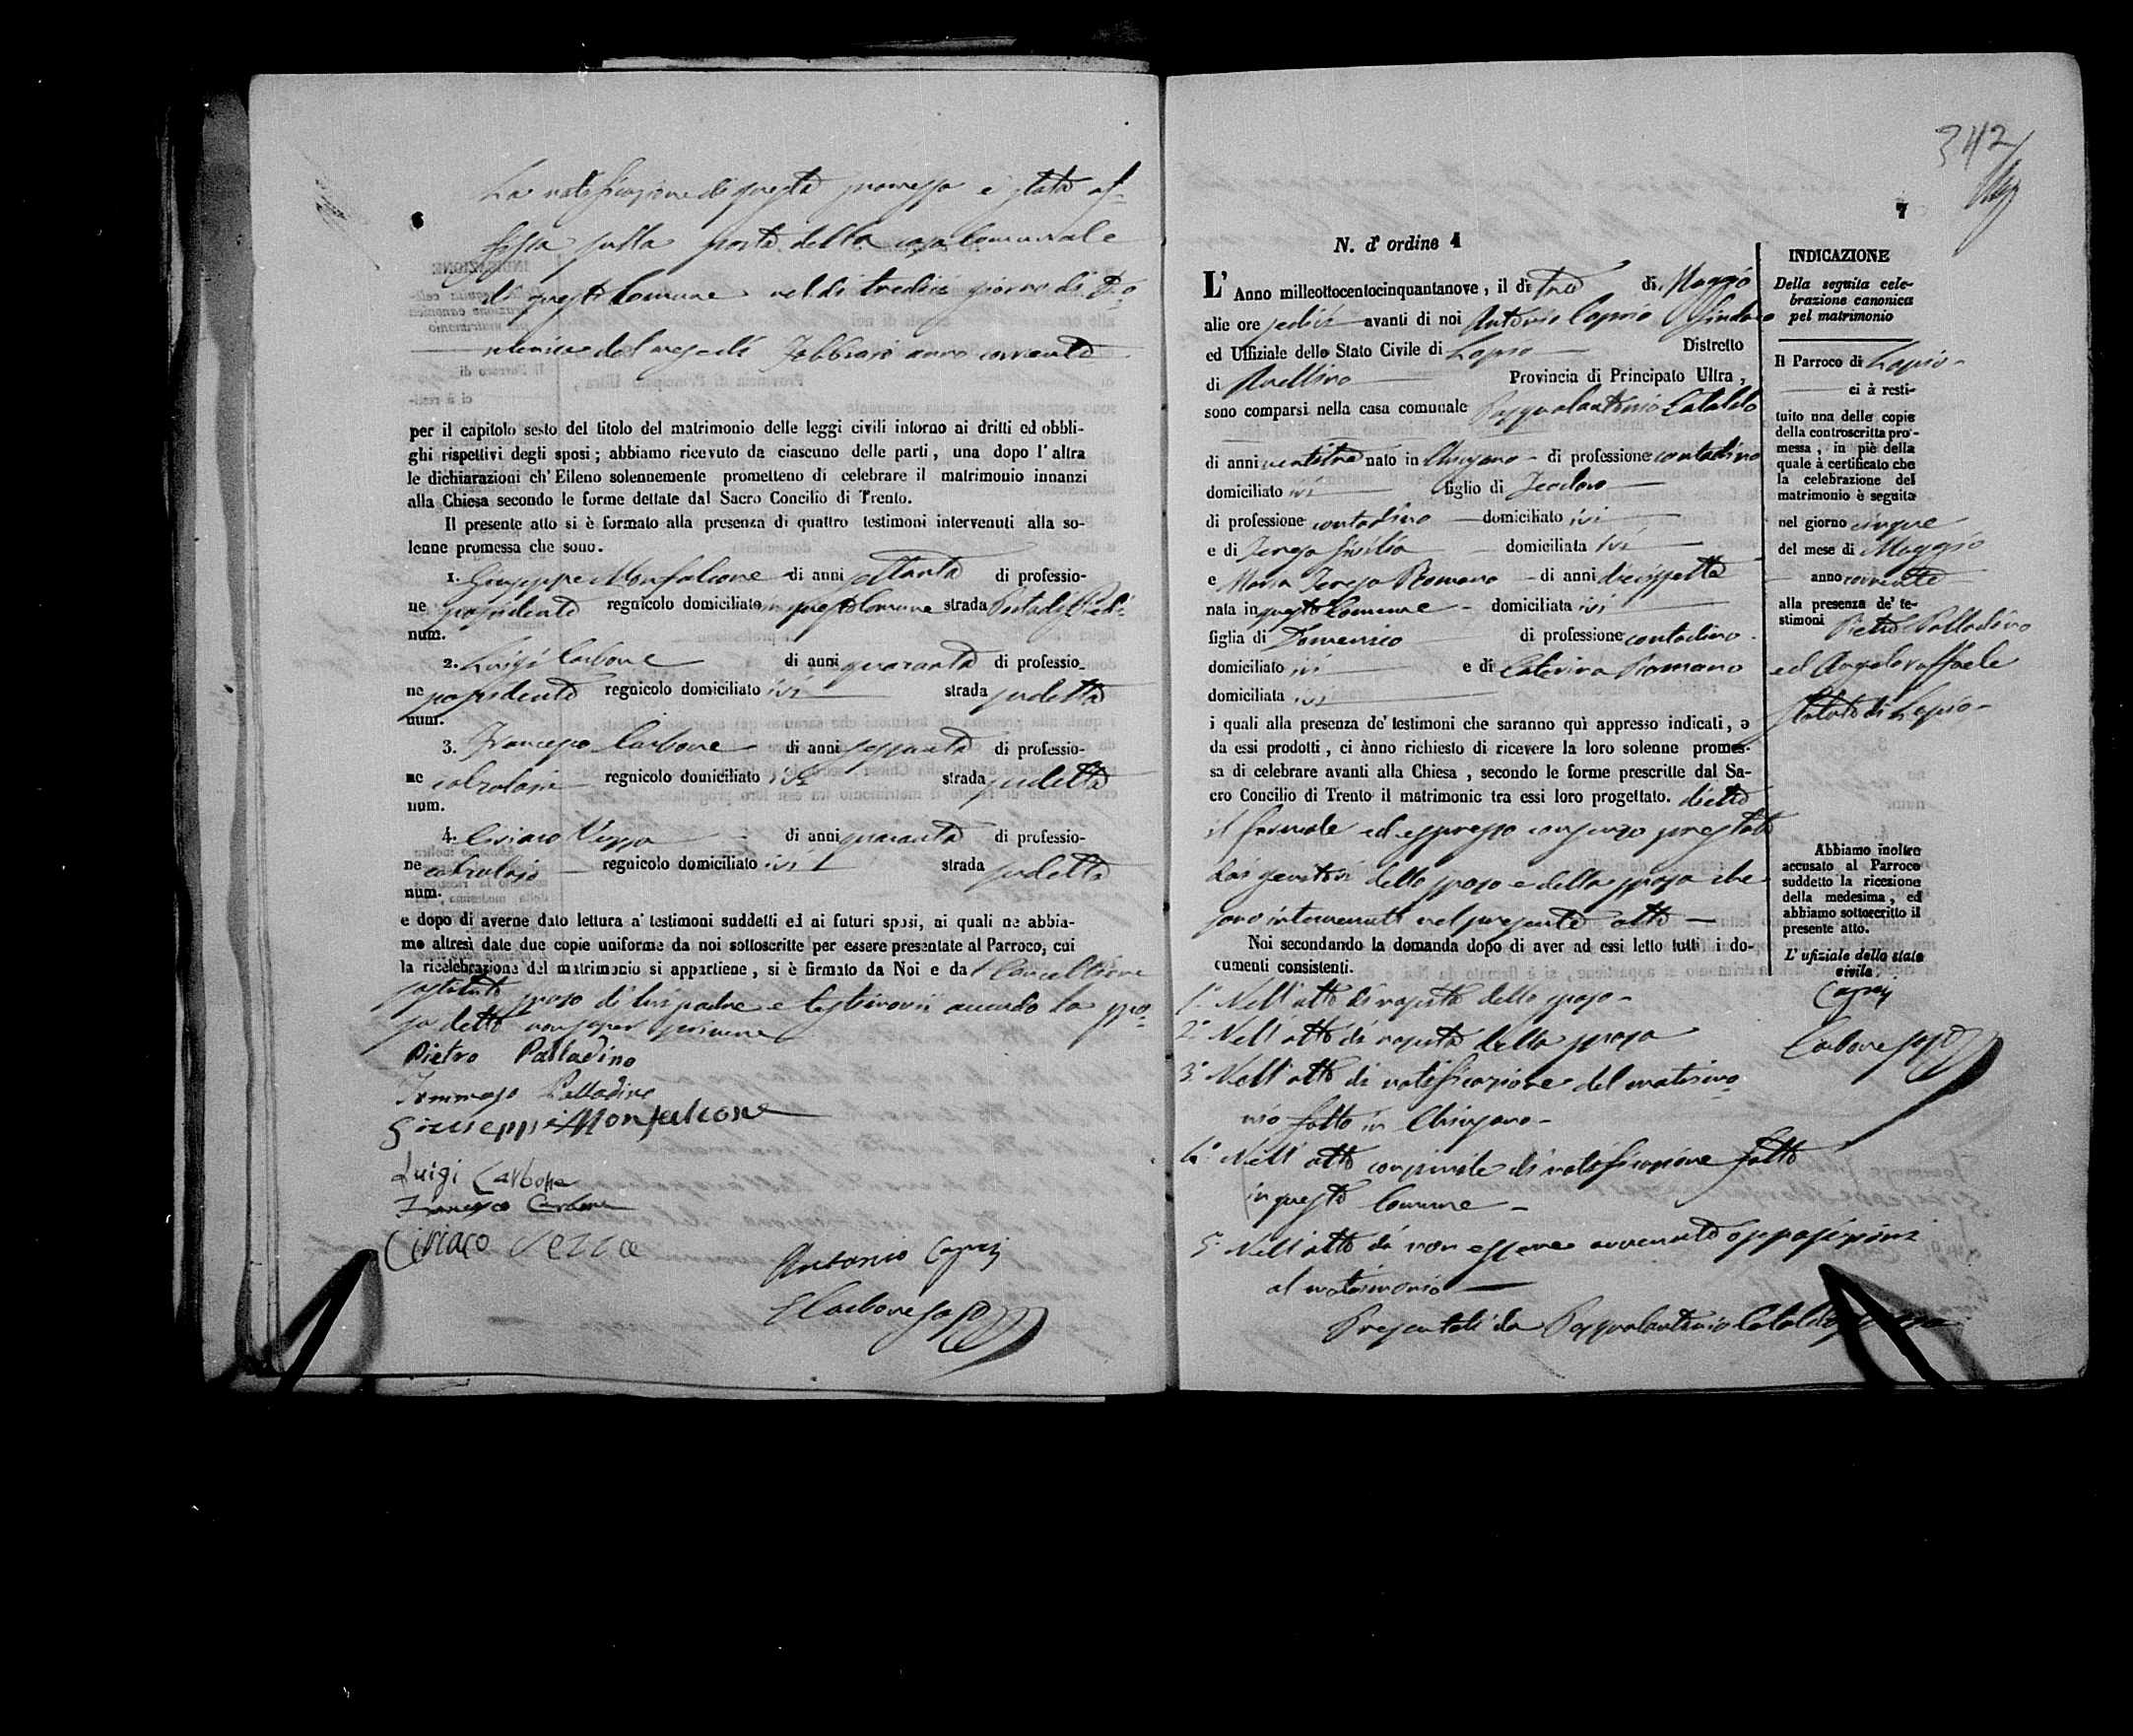 6
La notificazione di questa promessa è stata af-
fissa sulla porta della casa Comunale
di questo Comune nel di tredici giorno di Do-
menica del mese di Febbraio anno corrente
per il capitolo sesto del titolo del matrimonio delle leggi civili intorno ai dritti ed obbli-
ghi rispettivi degli sposi; abbiamo ricevuto da ciascuno delle parti, una dopo l'altra
le dichiarazioni ch'Eileno solennemente prometteno di celebrare il matrimonio innanzi
alla Chiesa secondo le forme dettate dal Sacro Concilio di Trento.
Il presente atto si è formato alla presenza di quattro testimoni intervenuti alla so-
lenne promessa che sono.
1. Giuseppe Monfalcone di anni settanta di professio-
ne possidente regnicolo domiciliato in questo Comune strada
num.
2. Luigi Carbone di anni quaranta di professio-
ne possidente regnicolo domiciliato ivi strada sudetta
num.
3. Francesco Carbone di anni sessanta di professio-
ne calzolajo regnicolo domiciliato ivi strada sudetta
num.
4. Ciriaco Vezza di anni quaranta di professio-
ne calzolajo regnicolo domiciliato ivi strada sudetta
num.
e dopo di averne dato lettura a' testimoni suddetti ed ai futuri sposi, ai quali ne abbia-
mo altresì date due copie uniforme da noi sottoscritte per essere presentate al Parroco, cui
la ricelebrazione del matrimonio si appartiene, si è firmato da Noi e dal Cancelliere
sostituto sposo di lui padre e testimonii avendo la spo-
sa detto non saper scrivere
Pietro Palladino
Tommaso Palladino
Giuseppe Monfalcone
Luigi Carbone
Francesco Carbone
Ciriaco Vezza
Antonio Caprio
Carbone
342
7
N. d'ordine 4
L'Anno millottocentocinquantanove, il dì tre di Maggio
alle ore sedici avanti di noi Antonio Caprio Sindaco
ed Uffiziale dello Stato Civile di Lapio Distretto
di Avellino Provincia di Principato Ultra,
sono comparsi nella casa comunale Pasqualantonio Cataldo
di anni ventitre nato in Chiusano di professione contadino
domiciliato ivi figlio di Teodoro
di professione contadino domiciliato ivi
e di Teresa Sicilia domiciliata ivi
e Maria Teresa Romano di anni diecissette
nata in questo Comune domiciliata ivi
figlia di Domenico di professione contadino
domiciliato ivi e di Caterina Romano
domiciliata ivi
i quali alla presenza de' testimoni che saranno quì appresso indicati, e
da essi prodotti, ci ànno richiesto di ricevere la loro solenne promes-
sa di celebrare avanti alla Chiesa, secondo le forme prescritte dal Sa-
cro Concilio di Trento il matrimonio tra essi loro progettato. dietro
il formale ed espresso consenso prestato
dai genitori dello sposo e della sposa che
sono intervenuti nel presente atto
Noi secondando la domanda dopo di aver ad essi letto tutti i do-
cumenti consistenti.
1.º Nell'atto di nascita dello sposo
2.º Nell'atto di nascita della sposa
3.º Nell'atto di notificazione del matrimo-
nio fatto in Chiusano
4.º Nell'atto consimile di notificazione fatto
in questo Comune
5.º Nell'atto di non essere avvenute opposizioni
al matrimonio
Presentati da Pasqualantonio Cataldo
INDICAZIONE
Della seguita cele-
brazione canonica
pel matrimonio
Il Parroco di Lapio
ci à resti-
tuito una delle copie
della controscritta pro-
messa, in piè della
quale à certificato che
la celebrazione del
matrimonio è seguita
nel giorno cinque
del mese di Maggio
anno corrente
alla presenza de' te-
stimoni Pietro Palladino
ed Angeloraffaele
di Lapio
Abbiamo inoltre
accusato al Parroco
suddetto la ricezione
della medesima, ed
abbiamo sottoscritto il
presente atto.
L'ufiziale dello stato
civile,
Caprio
Carbone